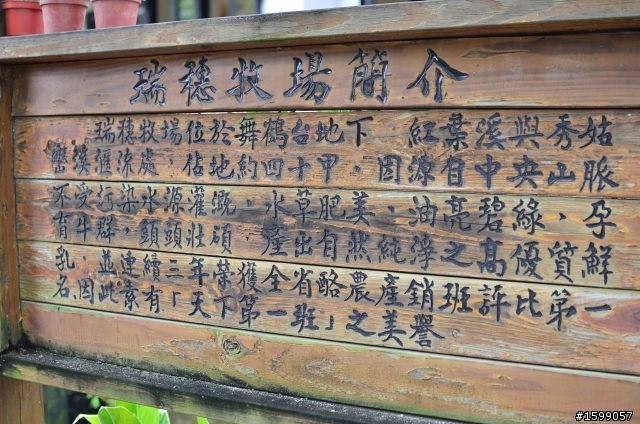 瑞穗牧場簡介
瑞穗牧場，位於舞鶴台地下。紅葉溪與秀姑
巒溪匯流處，佔地約四十甲。因源自中央山脈
不受污染，水源灌溉，水草肥美，油亮碧綠，孕
育牛群，頭頭壯碩，產出自然純淨之高優質鮮
乳，並連續三年榮獲全省酪農產銷班評比第一
名，因此素有「天下第一班」之美譽
#1599057